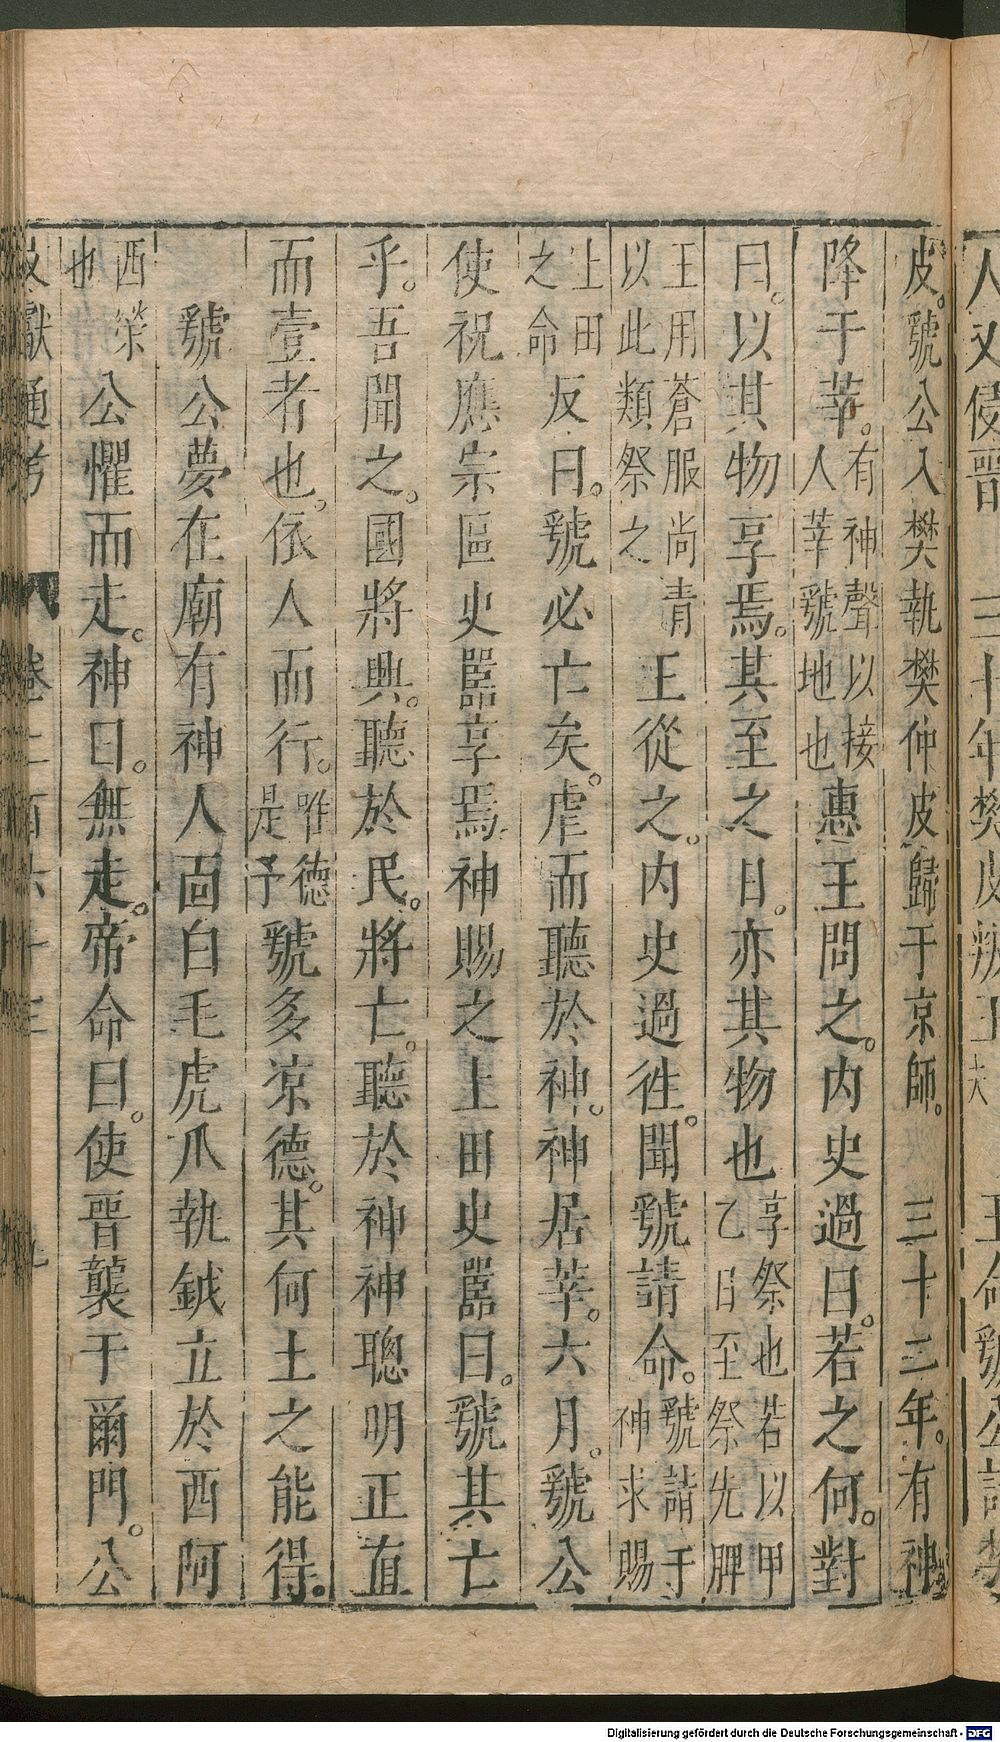 人又侵晉 三十年樊皮叛王夫 王命虢公討樊
皮。虢公入樊執樊仲皮歸于京師。 三十二年。有神
降于莘。有神聲以接人莘虢地也惠王問之。内史過曰。若之何。對
曰。以其物享焉。其至之日。亦其物也享祭也若以甲乙日至祭先脾
王用蒼服尚青以此類祭之王從之。内史過徃。聞虢請命。虢請于神求賜
上田之命反曰。虢必亡矣。虐而聽於神。神居莘。六月。虢公
使祝應宗區史嚚享焉神賜之土田史嚚曰。虢其亡
乎。吾聞之。國將興。聽於民。將亡。聽於神神聰明正直
而壹者也。依人而行。唯德是予虢多凉德。其何土之能得。
虢公夢在廟有神人面白毛虎爪執鉞立於西阿
西榮也公懼而走。神曰。無走。帝命曰。使晉襲于爾門。公
文獻通考 卷二百六十三 九
Digitalisierung gefördert durch die Deutsche Forschungsgemeinschaft - DFG